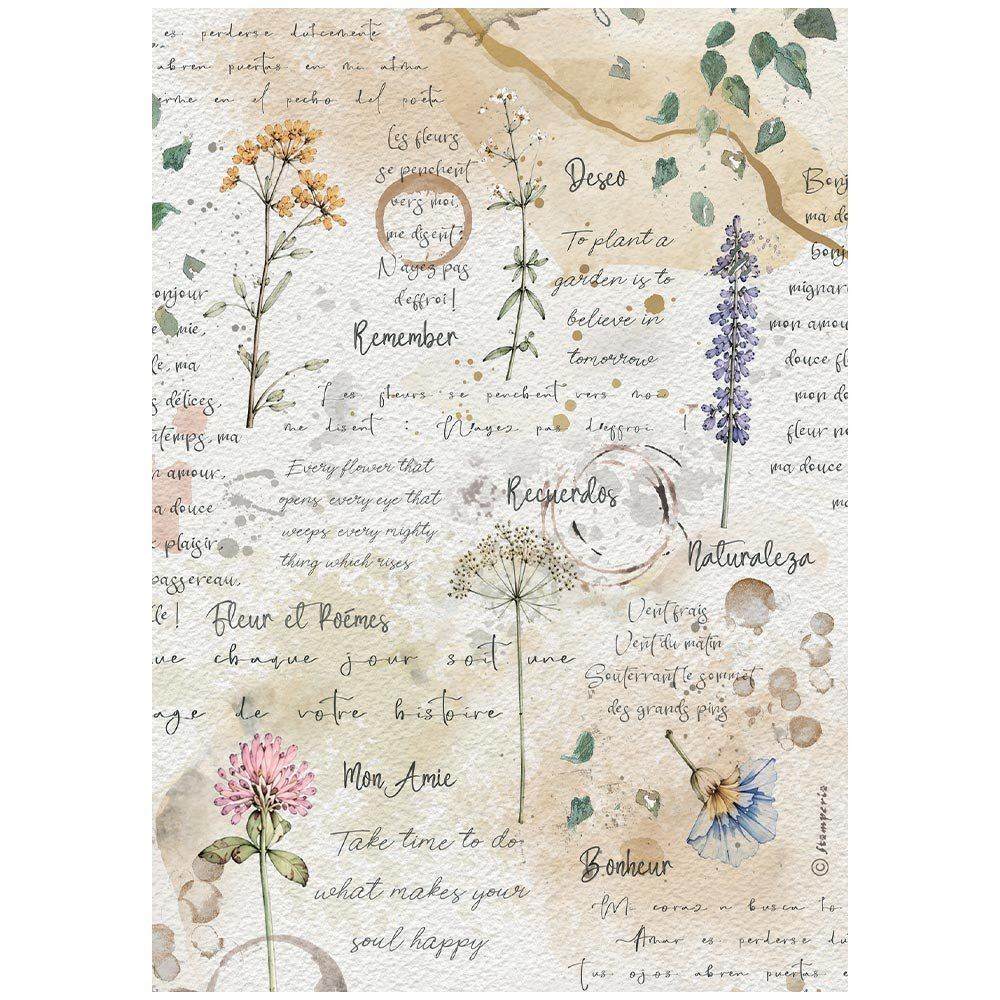 es perderse dulcemente
abren puertas en mi alma
erme en el pecho del poeta
Les fleurs
se penchent
vers moi,
me disent:
N'ayez pas
d'effroi!
Deseo
To plant a
garden is to
believe in
tomorrow
Remember
Bonj
ma do
bonj
mignar
mon amou
douce fl
mon do
fleur n
ma douce
m
onjour
mie,
le, ma
s délices,
ntemps, ma
n amour,
a douce
e plaisir,
passereau,
lle!
Les fleurs se penchent vers moi
me disent : N'ayez pas d'effroi !
Every flower that
opens every eye that
weeps every mighty
thing which rises
Recuerdos
Naturaleza
Fleur et Poémes
ue chaque jour soit une
age de votre histoire
Vent frais
Vent du matin
Souterrant le sommet
des grands pins
Mon Amie
Take time to do
what makes your
soul happy
Bonheur
© stamperia
Mi corazon busca lo
Amar es perderse du
Tus ojos abren puertas e